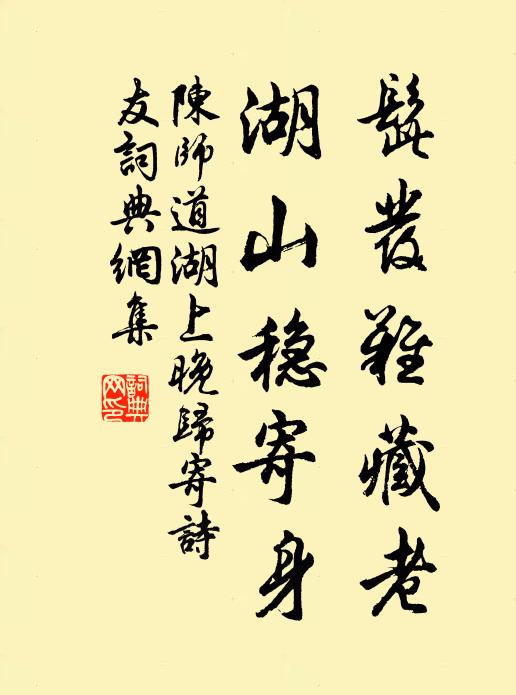 髭發難藏老
湖山穩寄身
陳師道湖上晚歸寄詩
友詞典網集
詞典
网印